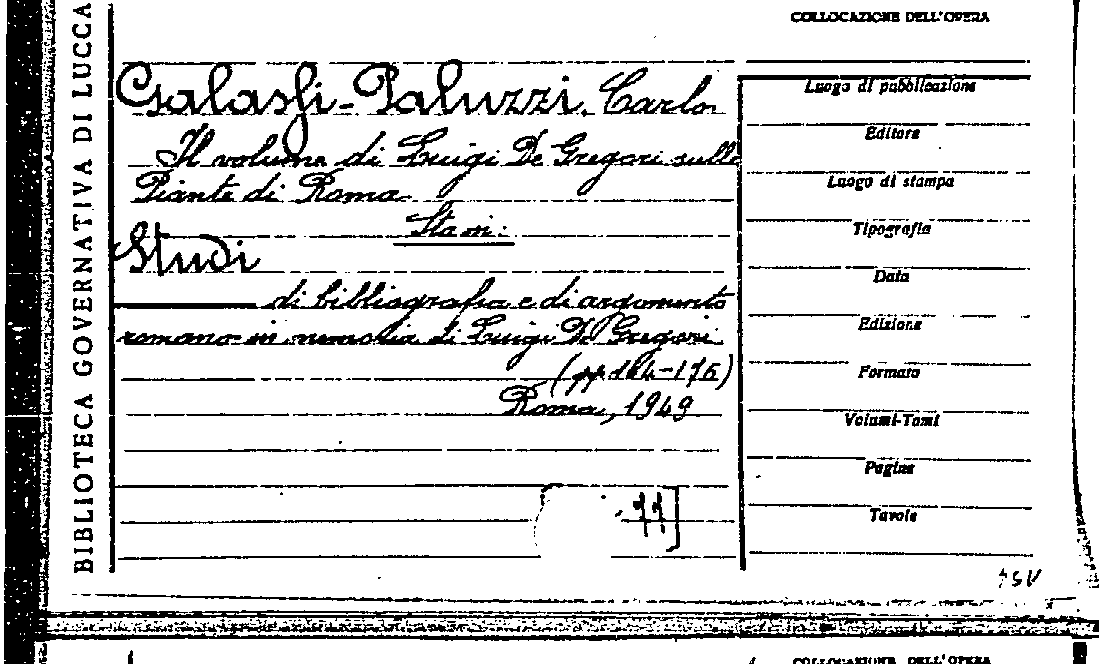 BIBLIOTECA GOVERNATIVA DI LUCCA
COLLOCAZIONE DELL'OPERA
Galassi-Paluzzi, Carlo
Il volume di Luigi De Gregori sulle
Piante di Roma.
Sta in:
Studi
di bibliografia e di argomento
romano in memoria di Luigi De Gregori.
(pp
Roma, 1949
Luogo di pubblicazione
Editore
Luogo di stampa
Tipografia
Data
Edizione
Formato
Volumi-Tomi
Pagine
Tavole
COLLOCAZIONE DELL'OPERA